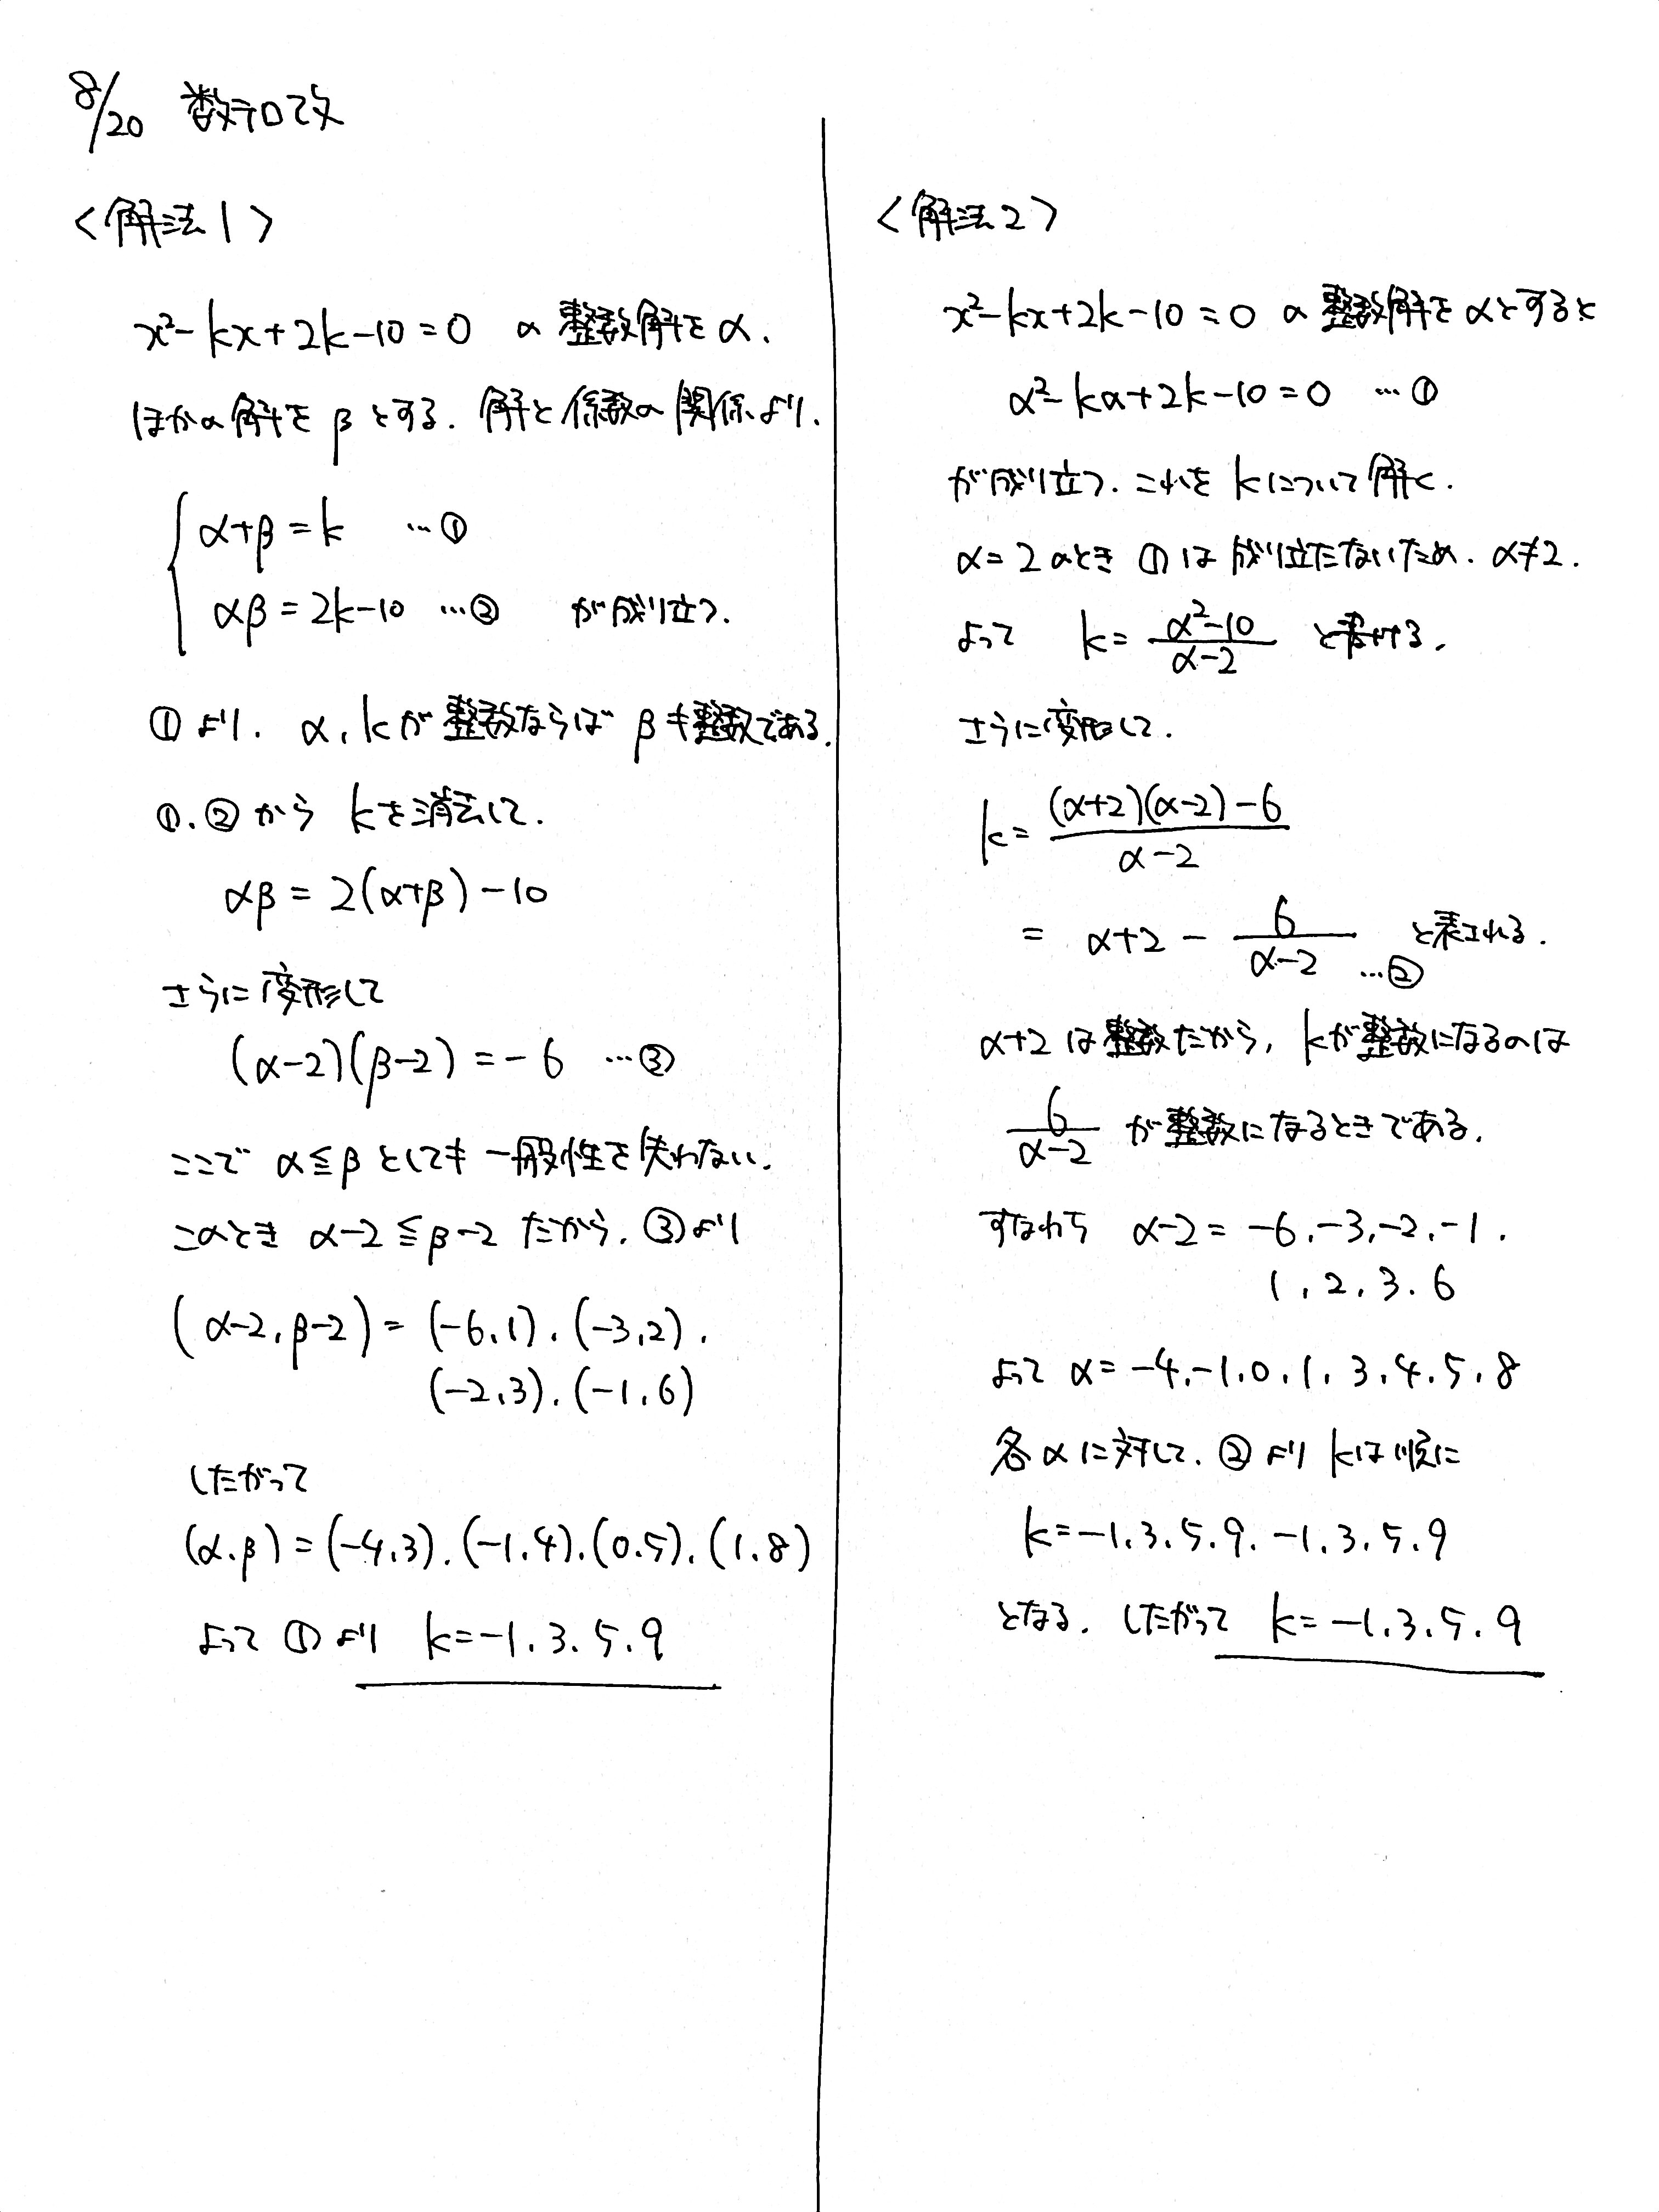 8/20 数テロ改
<解法1>
x²-kx+2k-10=0 の整数解を α,
ほかの解を β とする. 解と係数の関係より,
α+β=k …①
αβ=2k-10 …② が成り立つ.
①より, α, kが整数ならば β も整数である.
①, ②から kを消去して,
αβ = 2(α+β)-10
さらに変形して
(α-2)(β-2) = -6 …③
ここで α≦β としても一般性を失わない.
このとき α-2≦β-2 だから, ③より
(α-2, β-2) = (-6,1), (-3,2),
(-2,3), (-1,6)
したがって
(α, β) = (-4,3), (-1,4), (0,5), (1,8)
よって ①より k=-1, 3, 5, 9
<解法2>
x²-kx+2k-10=0 の整数解を αとすると
α²-kα+2k-10=0 …①
が成り立つ. これを kについて解く.
α=2のとき ①は成り立たないため, α≠2.
よって k= (α²-10)/(α-2) と書ける.
さらに変形して,
k= ((α+2)(α-2)-6)/(α-2)
= α+2 - 6/(α-2) …② と表される.
α+2は整数だから, kが整数になるのは
6/(α-2) が整数になるときである.
すなわち α-2 = -6, -3, -2, -1,
1, 2, 3, 6
よって α= -4, -1, 0, 1, 3, 4, 5, 8
各αに対して, ②より kは順に
k=-1, 3, 5, 9, -1, 3, 5, 9
となる. したがって k=-1, 3, 5, 9